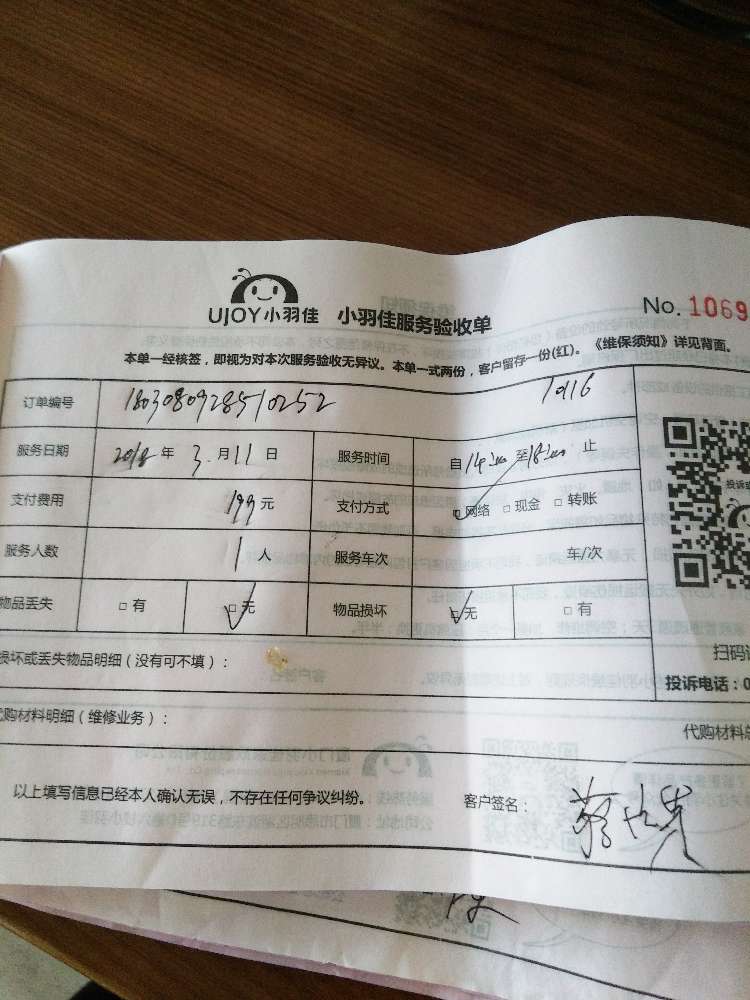 UJOY小羽佳 小羽佳服务验收单 No. 1069
本单一经核签，即视为对本次服务验收无异议。本单一式两份，客户留存一份(红)。《维保须知》详见背面。
订单编号 1803080928510252 1016
服务日期 2018 年 3 月 11 日 服务时间 自 14:00 至 18:00 止
支付费用 199 元 支付方式 网络 现金 转账
服务人数 1 人 服务车次 车/次
物品丢失 有 无 物品损坏 无 有
损坏或丢失物品明细（没有可不填）：
扫码
投诉电话：0
代购材料明细（维修业务）： 代购材料总
以上填写信息已经本人确认无误，不存在任何争议纠纷。 客户签名：